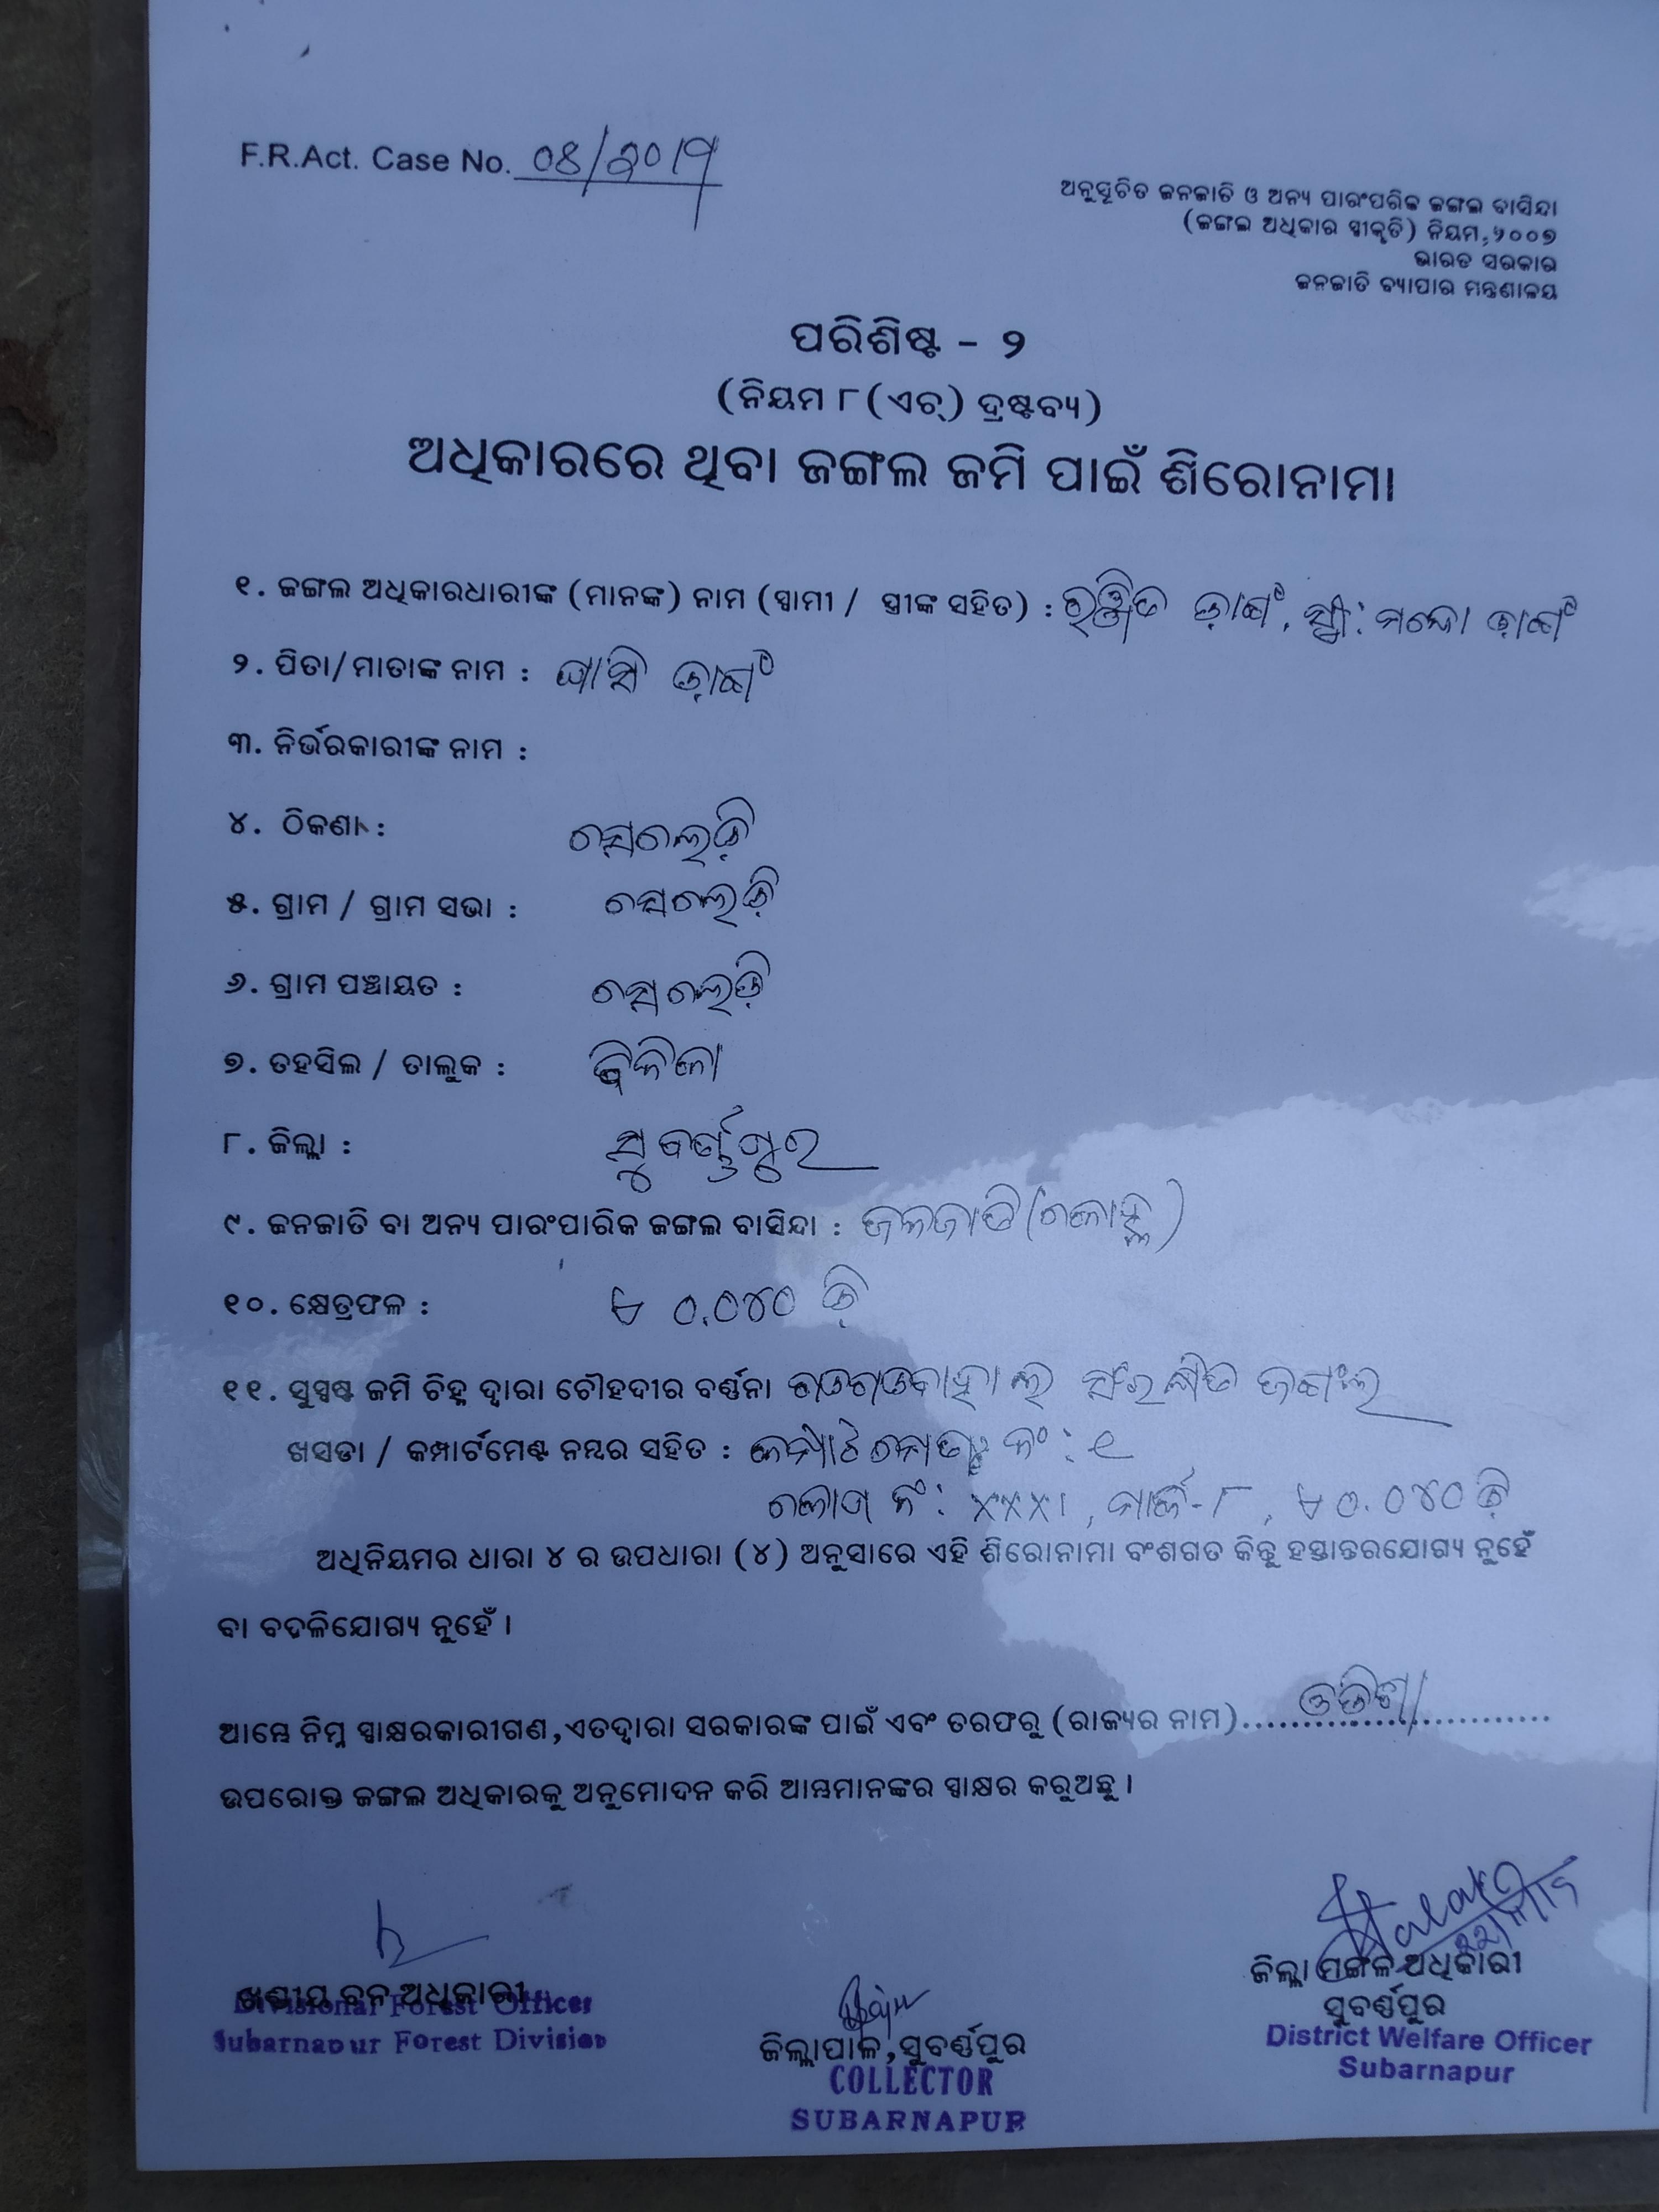 F.R.Act. Case No. 08/2017
ଅନୁସୂଚିତ ଜନଜାତି ଓ ଅନ୍ୟ ପାରଂପରିକ ଜଙ୍ଗଲ ବାସିନ୍ଦା
(ଜଙ୍ଗଲ ଅଧିକାର ସ୍ୱୀକୃତି) ନିୟମ,୨୦୦୭
ଭାରତ ସରକାର
ଜନଜାତି ବ୍ୟାପାର ମନ୍ତ୍ରଣାଳୟ
ପରିଶିଷ୍ଟ - ୨
(ନିୟମ ୮(ଏଚ୍) ଦ୍ରଷ୍ଟବ୍ୟ)
ଅଧିକାରରେ ଥିବା ଜଙ୍ଗଲ ଜମି ପାଇଁ ଶିରୋନାମା
୧. ଜଙ୍ଗଲ ଅଧିକାରଧାରୀଙ୍କ (ମାନଙ୍କ) ନାମ (ସ୍ୱାମୀ / ସ୍ତ୍ରୀଙ୍କ ସହିତ) : ରଞ୍ଜିତ ଡ଼ାଙ୍ଗ, ସ୍ତ୍ରୀ: ମନ୍ଦୋ ଡ଼ାଙ୍ଗ
୨. ପିତା/ମାତାଙ୍କ ନାମ : ଘାସି ଡ଼ାଙ୍ଗ
୩. ନିର୍ଭରକାରୀଙ୍କ ନାମ :
୪. ଠିକଣା : ସେଲେଡ଼ି
୫. ଗ୍ରାମ / ଗ୍ରାମ ସଭା : ସେଲେଡ଼ି
୬. ଗ୍ରାମ ପଞ୍ଚାୟତ : ସେଲେଡ଼ି
୭. ତହସିଲ / ତାଲୁକ : ବିନିକା
୮. ଜିଲ୍ଲା : ସୁବର୍ଣ୍ଣପୁର
୯. ଜନଜାତି ବା ଅନ୍ୟ ପାରଂପାରିକ ଜଙ୍ଗଲ ବାସିନ୍ଦା : ଜନଜାତି (କୋହ୍ଲ)
୧୦. କ୍ଷେତ୍ରଫଳ : ଏ ୦.୦୪୦ ଡ଼ି
୧୧. ସୁସ୍ପଷ୍ଟ ଜମି ଚିହ୍ନ ଦ୍ୱାରା ଚୌହଦୀର ବର୍ଣ୍ଣନା ସଂରକ୍ଷିତ ଜଙ୍ଗଲ
ଖସଡା / କମ୍ପାର୍ଟମେଣ୍ଟ ନମ୍ବର ସହିତ : କମ୍ପାର୍ଟମେଣ୍ଟ ନଂ : ୧
ନଂ: XXXI, ୮, ଏ ୦.୦୪୦ ଡ଼ି
ଅଧିନିୟମର ଧାରା ୪ ର ଉପଧାରା (୪) ଅନୁସାରେ ଏହି ଶିରୋନାମା ବଂଶଗତ କିନ୍ତୁ ହସ୍ତାନ୍ତରଯୋଗ୍ୟ ନୁହେଁ
ବା ବଦଳିଯୋଗ୍ୟ ନୁହେଁ ।
ଆମ୍ଭେ ନିମ୍ନ ସ୍ୱାକ୍ଷରକାରୀଗଣ,ଏତଦ୍ୱାରା ସରକାରଙ୍କ ପାଇଁ ଏବଂ ତରଫରୁ (ରାଜ୍ୟର ନାମ).....ଓଡିଶା.....
ଉପରୋକ୍ତ ଜଙ୍ଗଲ ଅଧିକାରକୁ ଅନୁମୋଦନ କରି ଆମ୍ଭମାନଙ୍କର ସ୍ୱାକ୍ଷର କରୁଅଛୁ ।
ଖଣ୍ଡୀୟ ବନ ଅଧିକାରୀ
Divisional Forest Officer
Subarnapur Forest Division
ଜିଲ୍ଲାପାଳ,ସୁବର୍ଣ୍ଣପୁର
COLLECTOR
SUBARNAPUR
ଜିଲ୍ଲା ମଙ୍ଗଳ ଅଧିକାରୀ
ସୁବର୍ଣ୍ଣପୁର
District Welfare Officer
Subarnapur